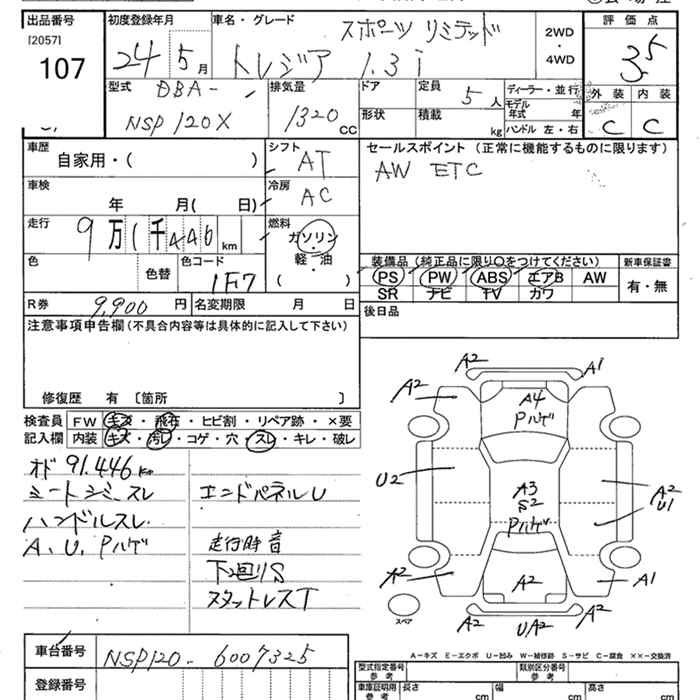 出品番号
[2057]
107
初度登録年月
24年 5月
車名・グレード
スポーツリミテッド
トレジア 1.3i
2WD
・
4WD
評価点
3.5
外装 内装
C C
型式
DBA-
NSP120X
排気量
1320 cc
ドア
形状
定員
5人
積載
kg
ディーラー・並行
モデル年式 年
ハンドル 左・右
車歴
自家用・( )
車検
年 月( 日)
走行
9万1千446km
色
色替
色コード
1F7
シフト
AT
冷房
AC
燃料
ガソリン
・
軽・油
( )
セールスポイント (正常に機能するものに限ります)
AW ETC
装備品 (純正品に限り○をつけてください)
PS PW ABS エアB AW
SR ナビ TV カワ
新車保証書
有・無
R券 9,900円
名変期限 月 日
後日品
注意事項申告欄(不具合内容等は具体的に記入して下さい)
修復歴 有 〔箇所 〕
検査員記入欄
FW キズ・飛石・ヒビ割・リペア跡・×要
内装 キズ・汚レ・コゲ・穴・スレ・キレ・破レ
オド 91.446km
シートシミ、スレ
ハンドルスレ
A、U、Pハゲ
エンドパネルU
走行時音
下回りS
スタットレスT
A2 A1
A2
A4
Pハゲ
A2
U2
A3
S2
Pハゲ
A2
U1
A2
A2
A1
スペア
A2 UA2 A2
A-キズ E-エクボ U-凹み W-補修跡 S-サビ C-腐食 ××-交換済
車台番号
NSP120-6007325
登録番号
型式指定番号
参考
類別区分番号
参考
車庫証明用
参考
長さ cm
幅 cm
高さ cm